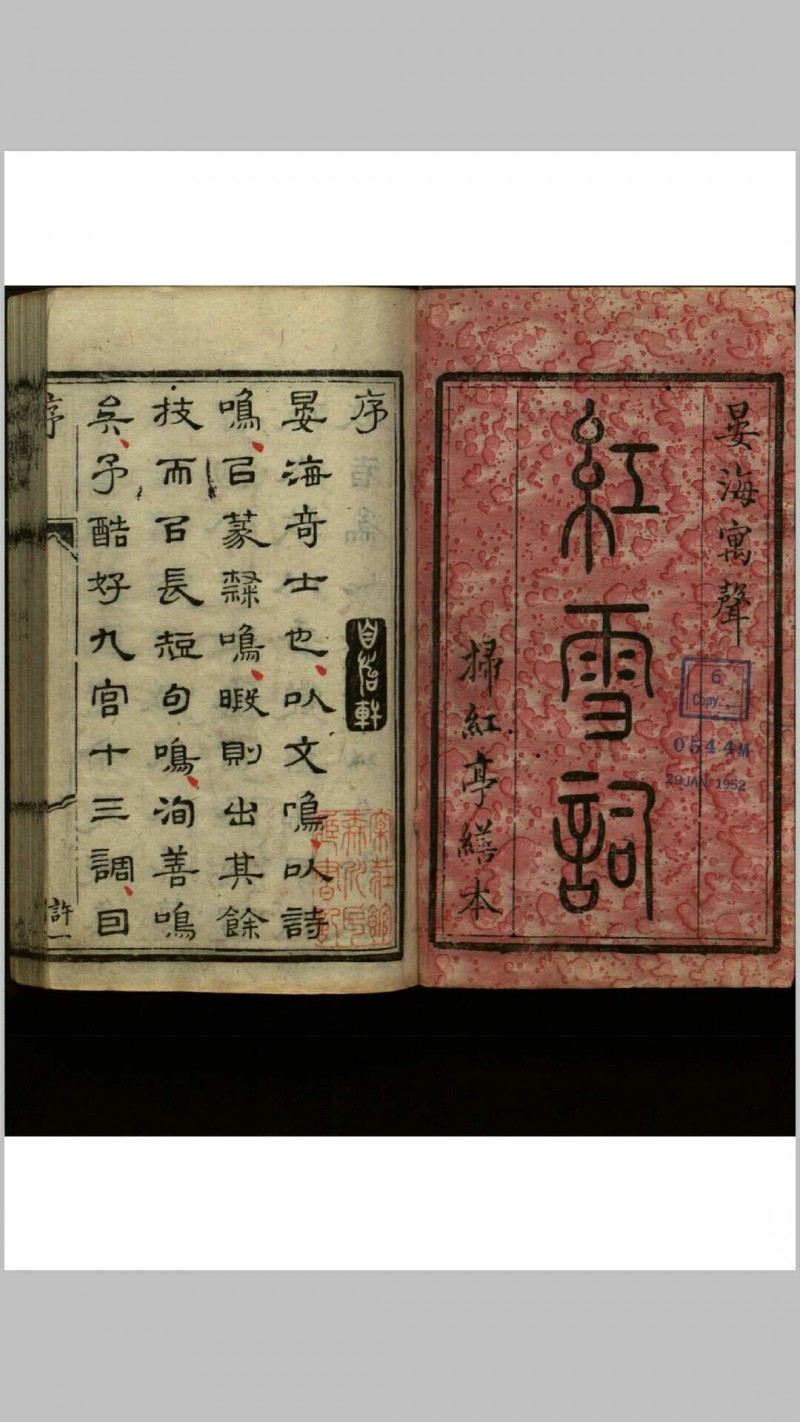 晏海寓聲
紅雪詞
掃紅亭繕本
6
Copy
0544M
29 JAN 1952
序
晏海奇士也以文鳴以詩
鳴㠯篆隸鳴暇則出其餘
技而㠯長短句鳴洵善鳴
矣予酷好九宮十三調自
序
許
一